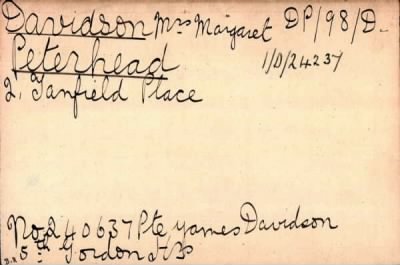 Davidson Mrs Margaret DP/98/D.
Peterhead 1/D/24237
2, Tanfield Place
No 240637 Pte James Davidson
5th Gordon Hrs